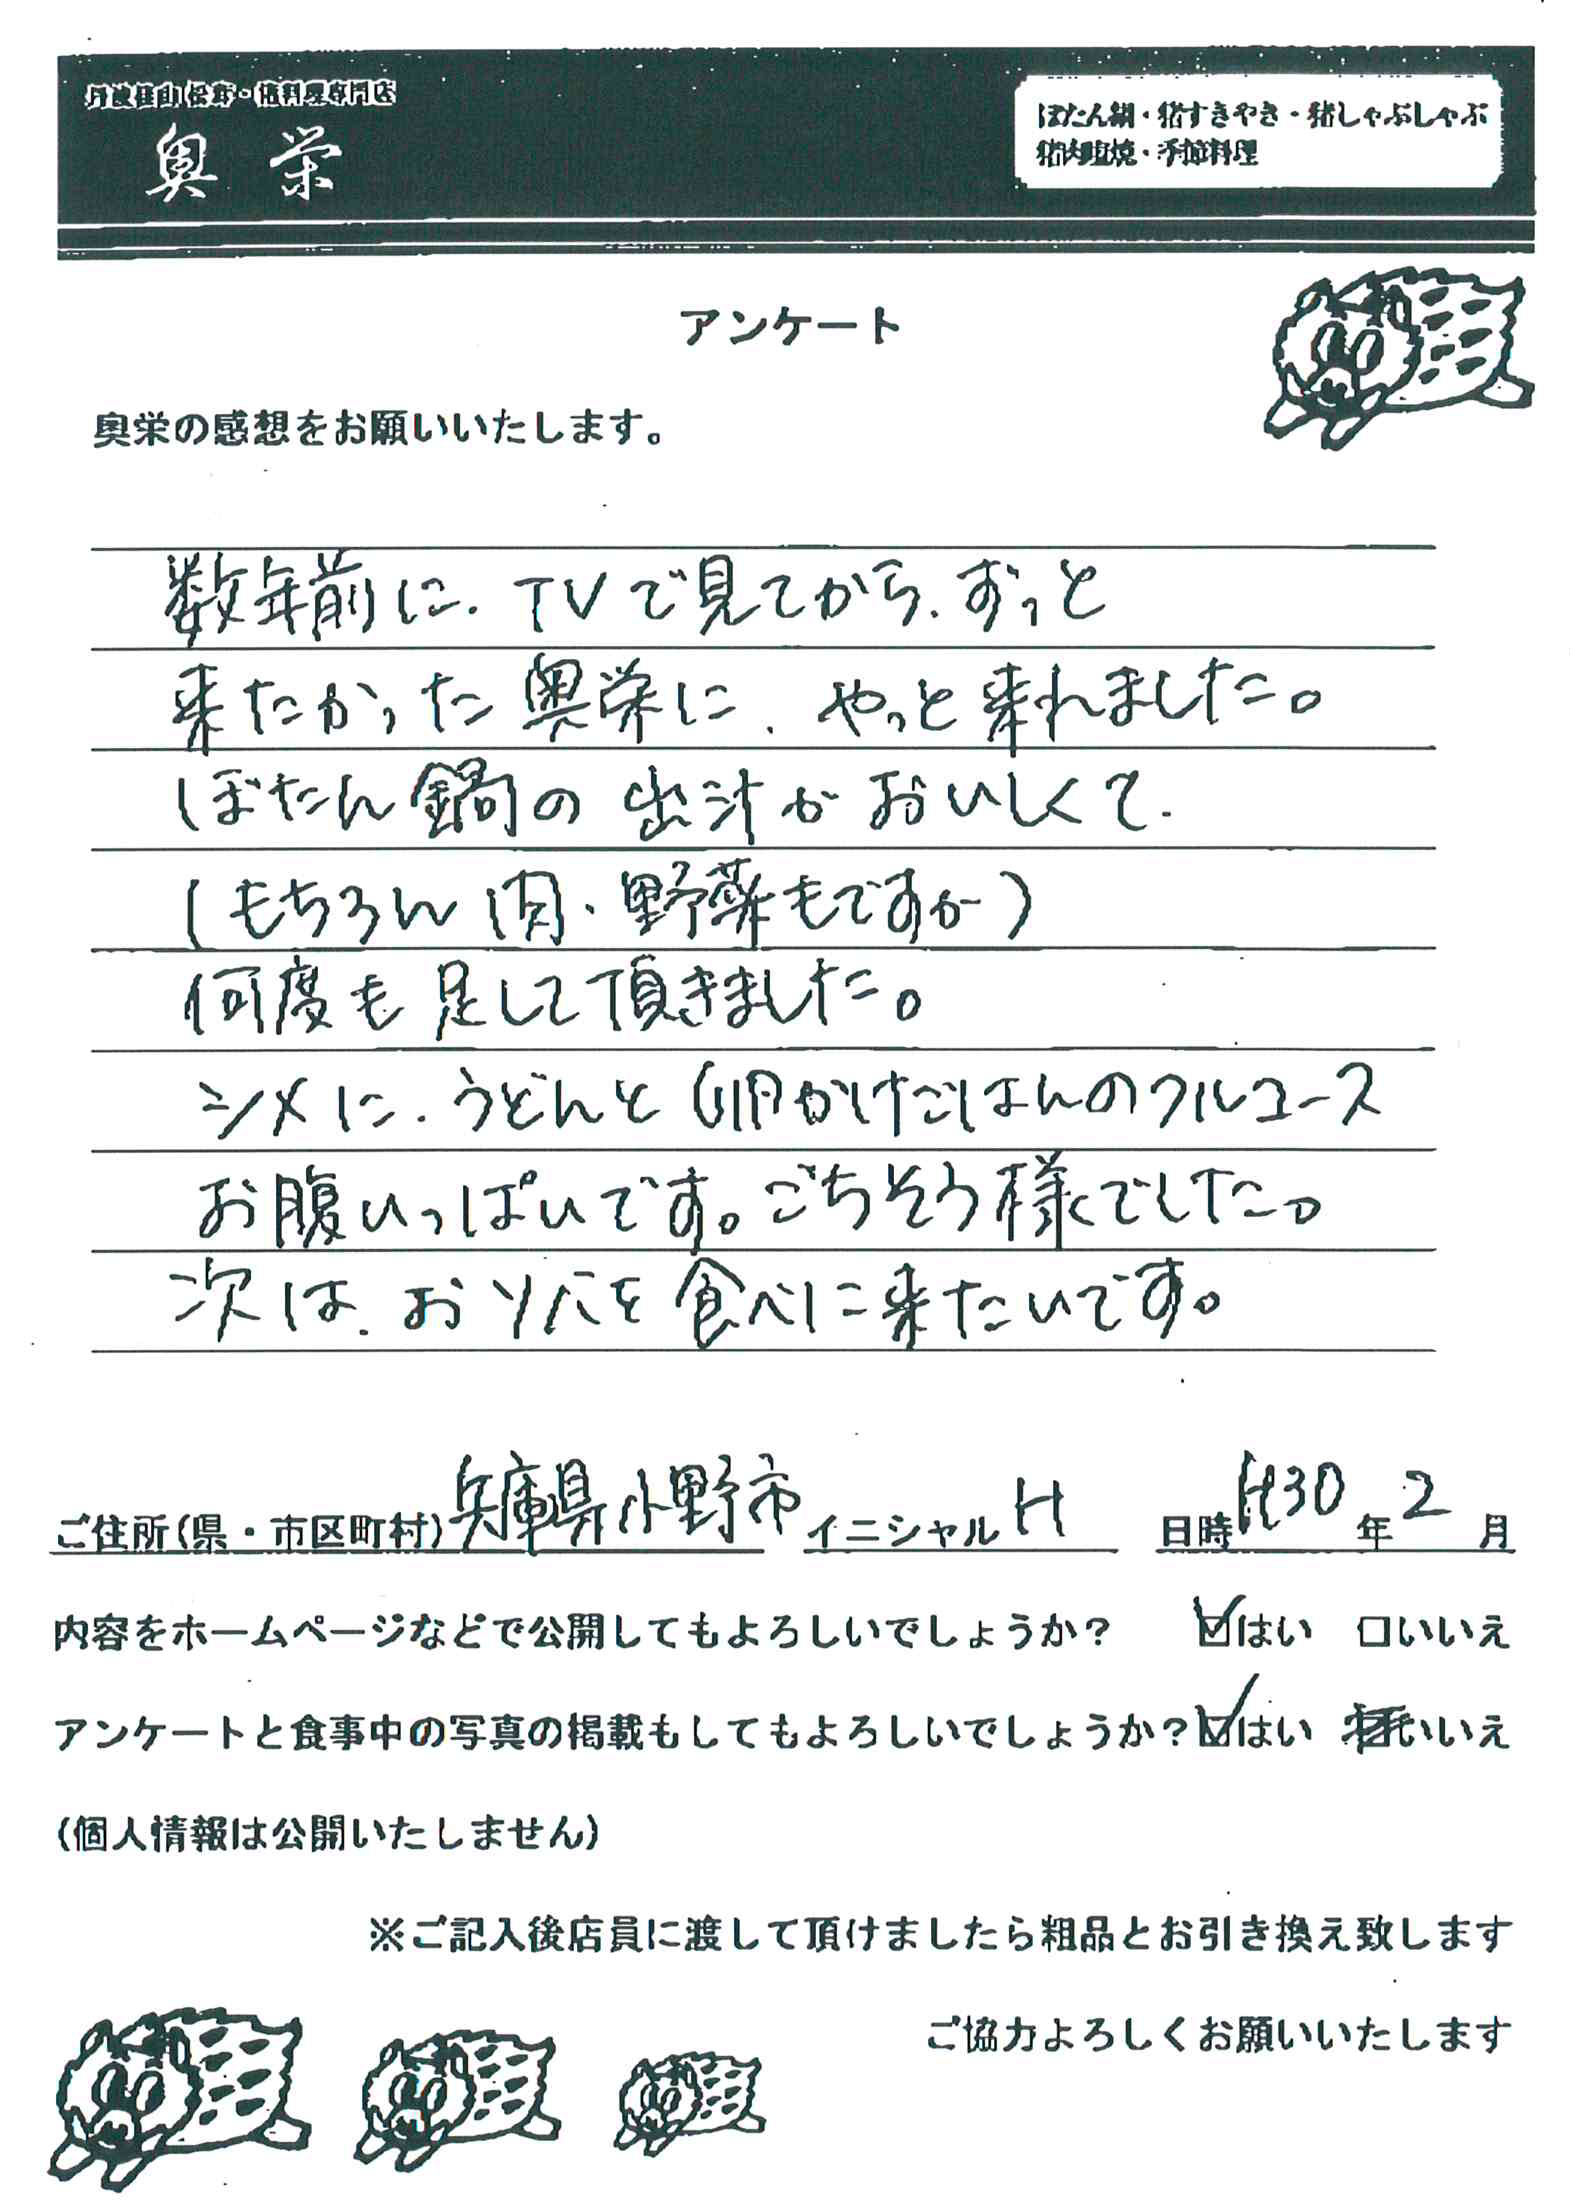 奥栄
ぼたん鍋・猪すきやき・猪しゃぶしゃぶ
猪肉塩焼・季節料理
アンケート
奥栄の感想をお願いいたします。
数年前に、TVで見てから、ずっと
来たかった奥栄に、やっと来れました。
ぼたん鍋の出汁がおいしくて、
(もちろん肉・野菜もですが)
何度も足して頂きました。
シメに、うどんと卵かけごはんのフルコース
お腹いっぱいです。ごちそう様でした。
次は、おソバを食べに来たいです。
ご住所(県・市区町村)兵庫県小野市 イニシャル H 日時 H30年2月
内容をホームページなどで公開してもよろしいでしょうか? ☑はい □いいえ
アンケートと食事中の写真の掲載もしてもよろしいでしょうか?☑はい いいえ
(個人情報は公開いたしません)
※ご記入後店員に渡して頂けましたら粗品とお引き換え致します
ご協力よろしくお願いいたします